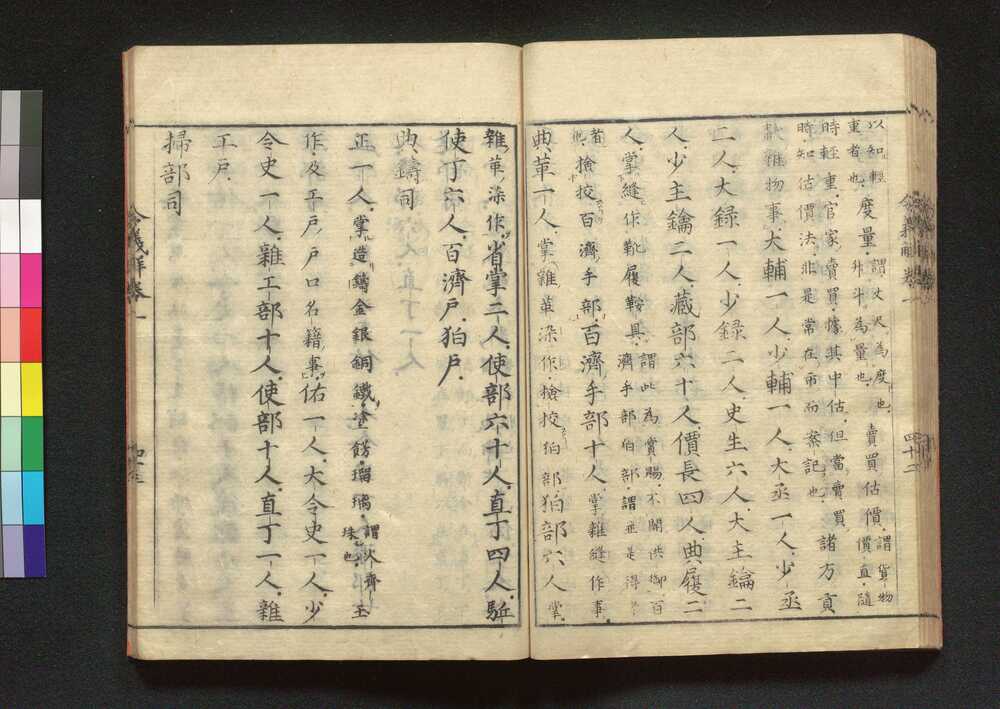 以知輕
重者也 度量 謂丈尺為度也 升斗為量也 賣買估價 謂貨物價直隨
時輕重 官家賣買 據其中估 但當賣買
時 知估價法 非是常在市而案記也 諸方貢
獻雜物事 大輔一人 少輔一人 大丞一人 少丞
二人 大録一人 少録二人 史生六人 大主鑰二
人 少主鑰二人 藏部六十人 價長四人 典履二
人 掌縫作靴履鞍具 謂此為賞賜 不關供御 百濟手部狛部 謂並是得
者也 撿挍百濟手部 百濟手部十人 掌雜縫作事
典革一人 掌雜革染作 撿挍狛部 狛部六人 掌
雜革染作 省掌二人 使部六十人 直丁四人 駈
使丁六人 百濟戸 狛戸
典鑄司
正一人 掌造鑄金銀銅鐵 塗餝瑠璃 謂火齊珠也 玉
作 及工戸戸口名籍事 佑一人 大令史一人 少
令史一人 雜工部十人 使部十人 直丁一人 雜
工戸
掃部司
令義解卷一
四十二
令義解卷一